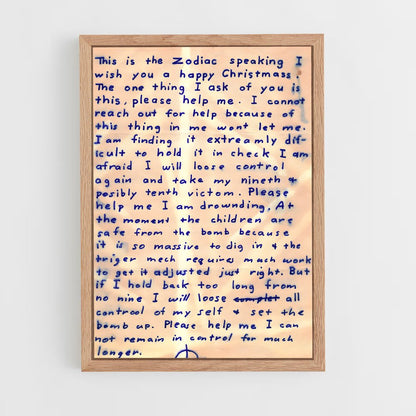 This is the Zodiac speaking I
wish you a happy Christmass.
The one thing I ask of you is
this, please help me. I cannot
reach out for help because of
this thing in me wont let me.
I am finding it extreamly dif-
icult to hold it in check I am
afraid I will loose control
again and take my nineth +
posibly tenth victom. Please
help me I am drownding. At
the moment the children are
safe from the bomb because
it is so massive to dig in + the
triger mech requires much work
to get it adjusted just right. But
if I hold back too long from
no nine I will loose complet all
controol of my self + set the
bomb up. Please help me I can
not remain in control for much
longer.